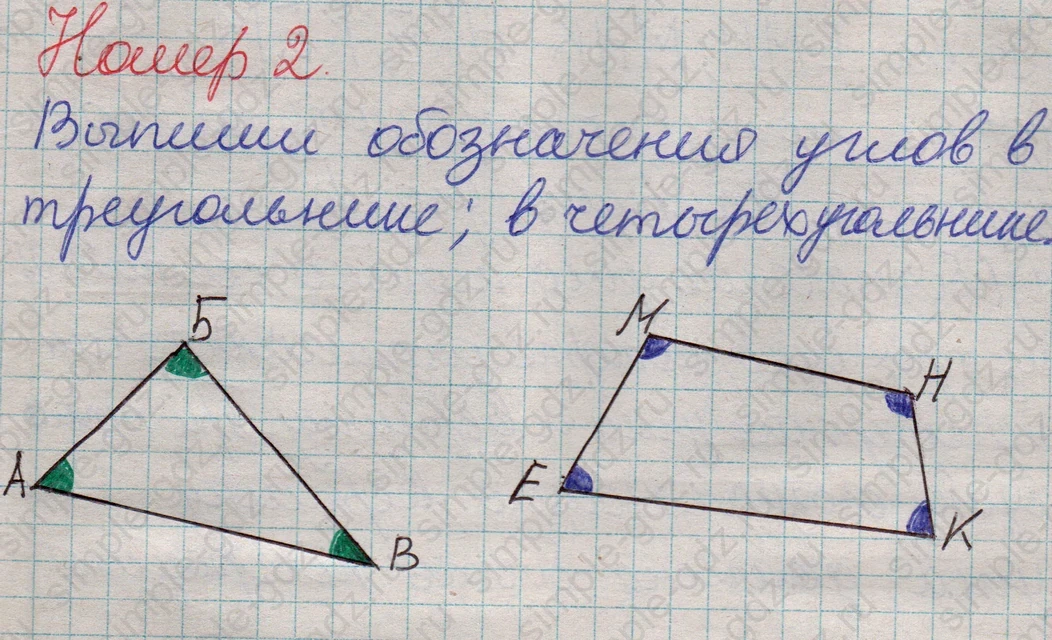 Номер 2.
Выпиши обозначения углов в
треугольнике; в четырехугольнике.
Б
М
Н
А
Е
В
К
simple-gdz.ru